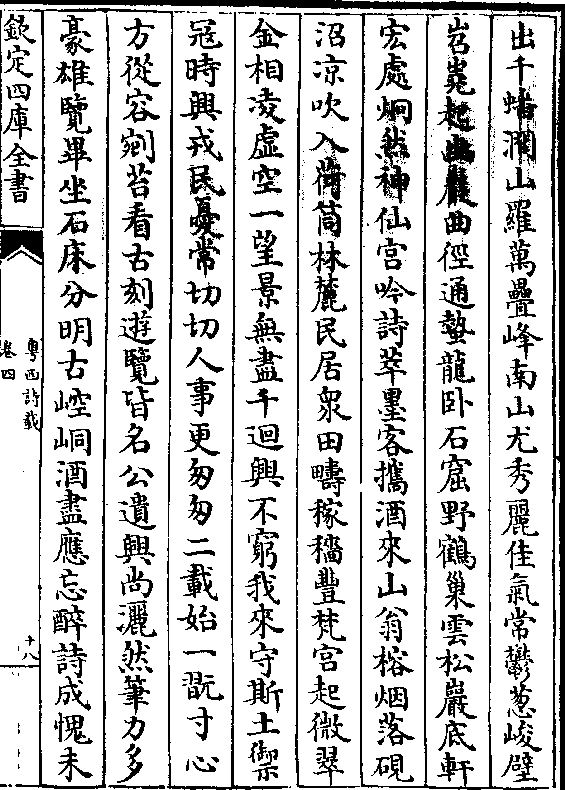 出千蟠澗山羅萬疊峰南山尤秀麗佳氣常鬱葱峻壁
岧嶤起幽巖曲徑通蟄龍卧石窟野鶴巢雲松巖底軒
宏處炯然神仙宫吟詩萃墨客攜酒來山翁榕烟落硯
沼凉吹入荷筒林麓民居衆田疇稼穡豐梵宫起微翠
金相凌虚空一望景無盡千迴興不窮我來守斯土禦
冦時興戎民憂常切切人事更匆匆二載始一翫寸心
方從容剜苔看古刻遊覽皆名公遺興尚灑然筆力多
豪雄覽畢坐石床分明古崆峒酒盡應忘醉詩成愧未
欽定四庫全書
粤西詩載
卷四
十八